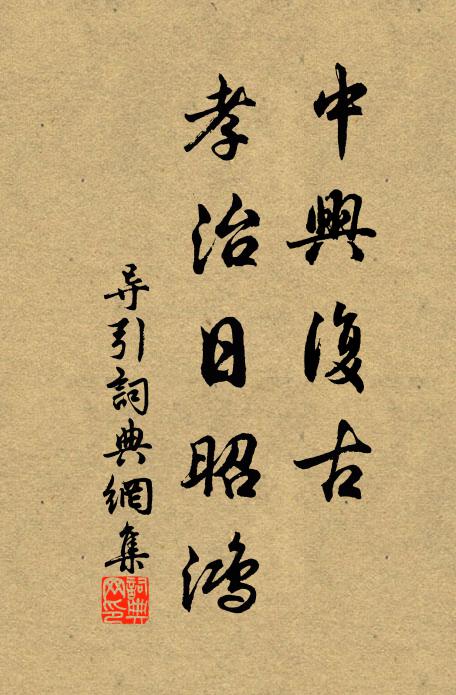 中興復古
孝治日昭鴻
导引詞典網集
詞典网印